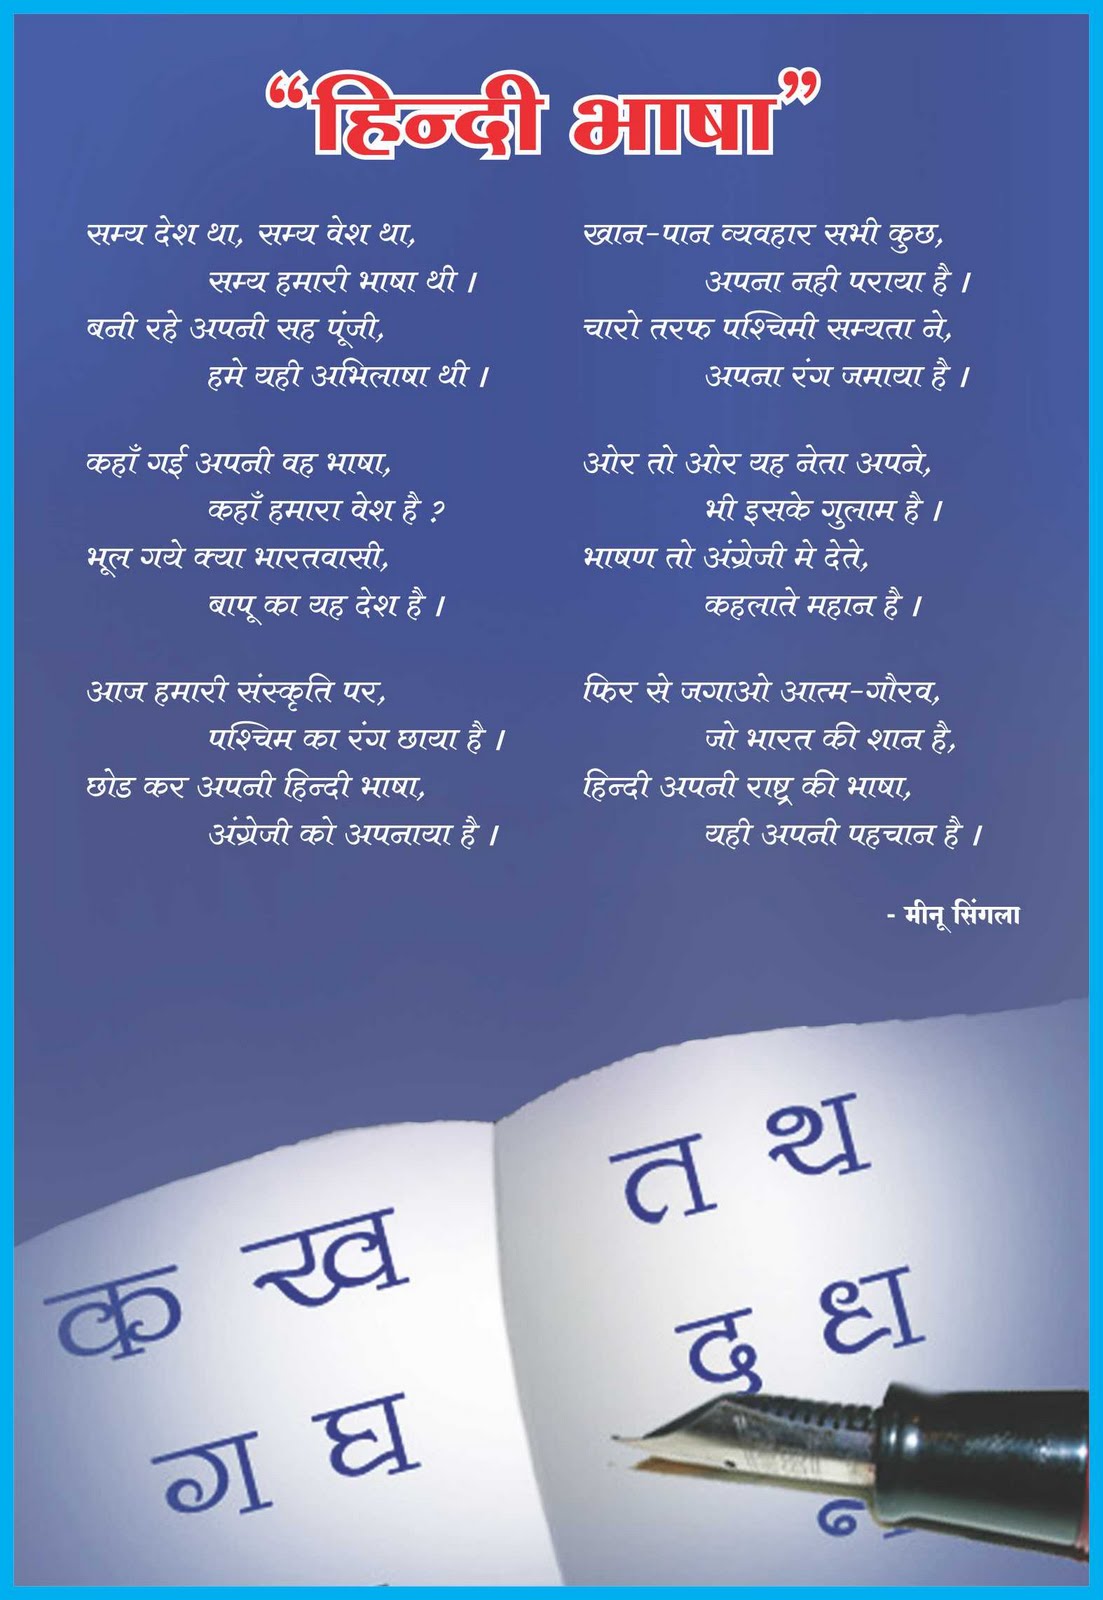 “हिन्दी भाषा”
सम्य देश था, सम्य वेश था,
सम्य हमारी भाषा थी ।
बनी रहे अपनी सह पूंजी,
हमे यही अभिलाषा थी ।
कहाँ गई अपनी वह भाषा,
कहाँ हमारा वेश है ?
भूल गये क्या भारतवासी,
बापू का यह देश है ।
आज हमारी संस्कृति पर,
पश्चिम का रंग छाया है ।
छोड कर अपनी हिन्दी भाषा,
अंग्रेजी को अपनाया है ।
खान-पान व्यवहार सभी कुछ,
अपना नही पराया है ।
चारो तरफ पश्चिमी सम्यता ने,
अपना रंग जमाया है ।
ओर तो ओर यह नेता अपने,
भी इसके गुलाम है ।
भाषण तो अंग्रेजी मे देते,
कहलाते महान है ।
फिर से जगाओ आत्म-गौरव,
जो भारत की शान है,
हिन्दी अपनी राष्ट्र की भाषा,
यही अपनी पहचान है ।
- मीनू सिंगला
क ख
ग घ
त थ
द ध